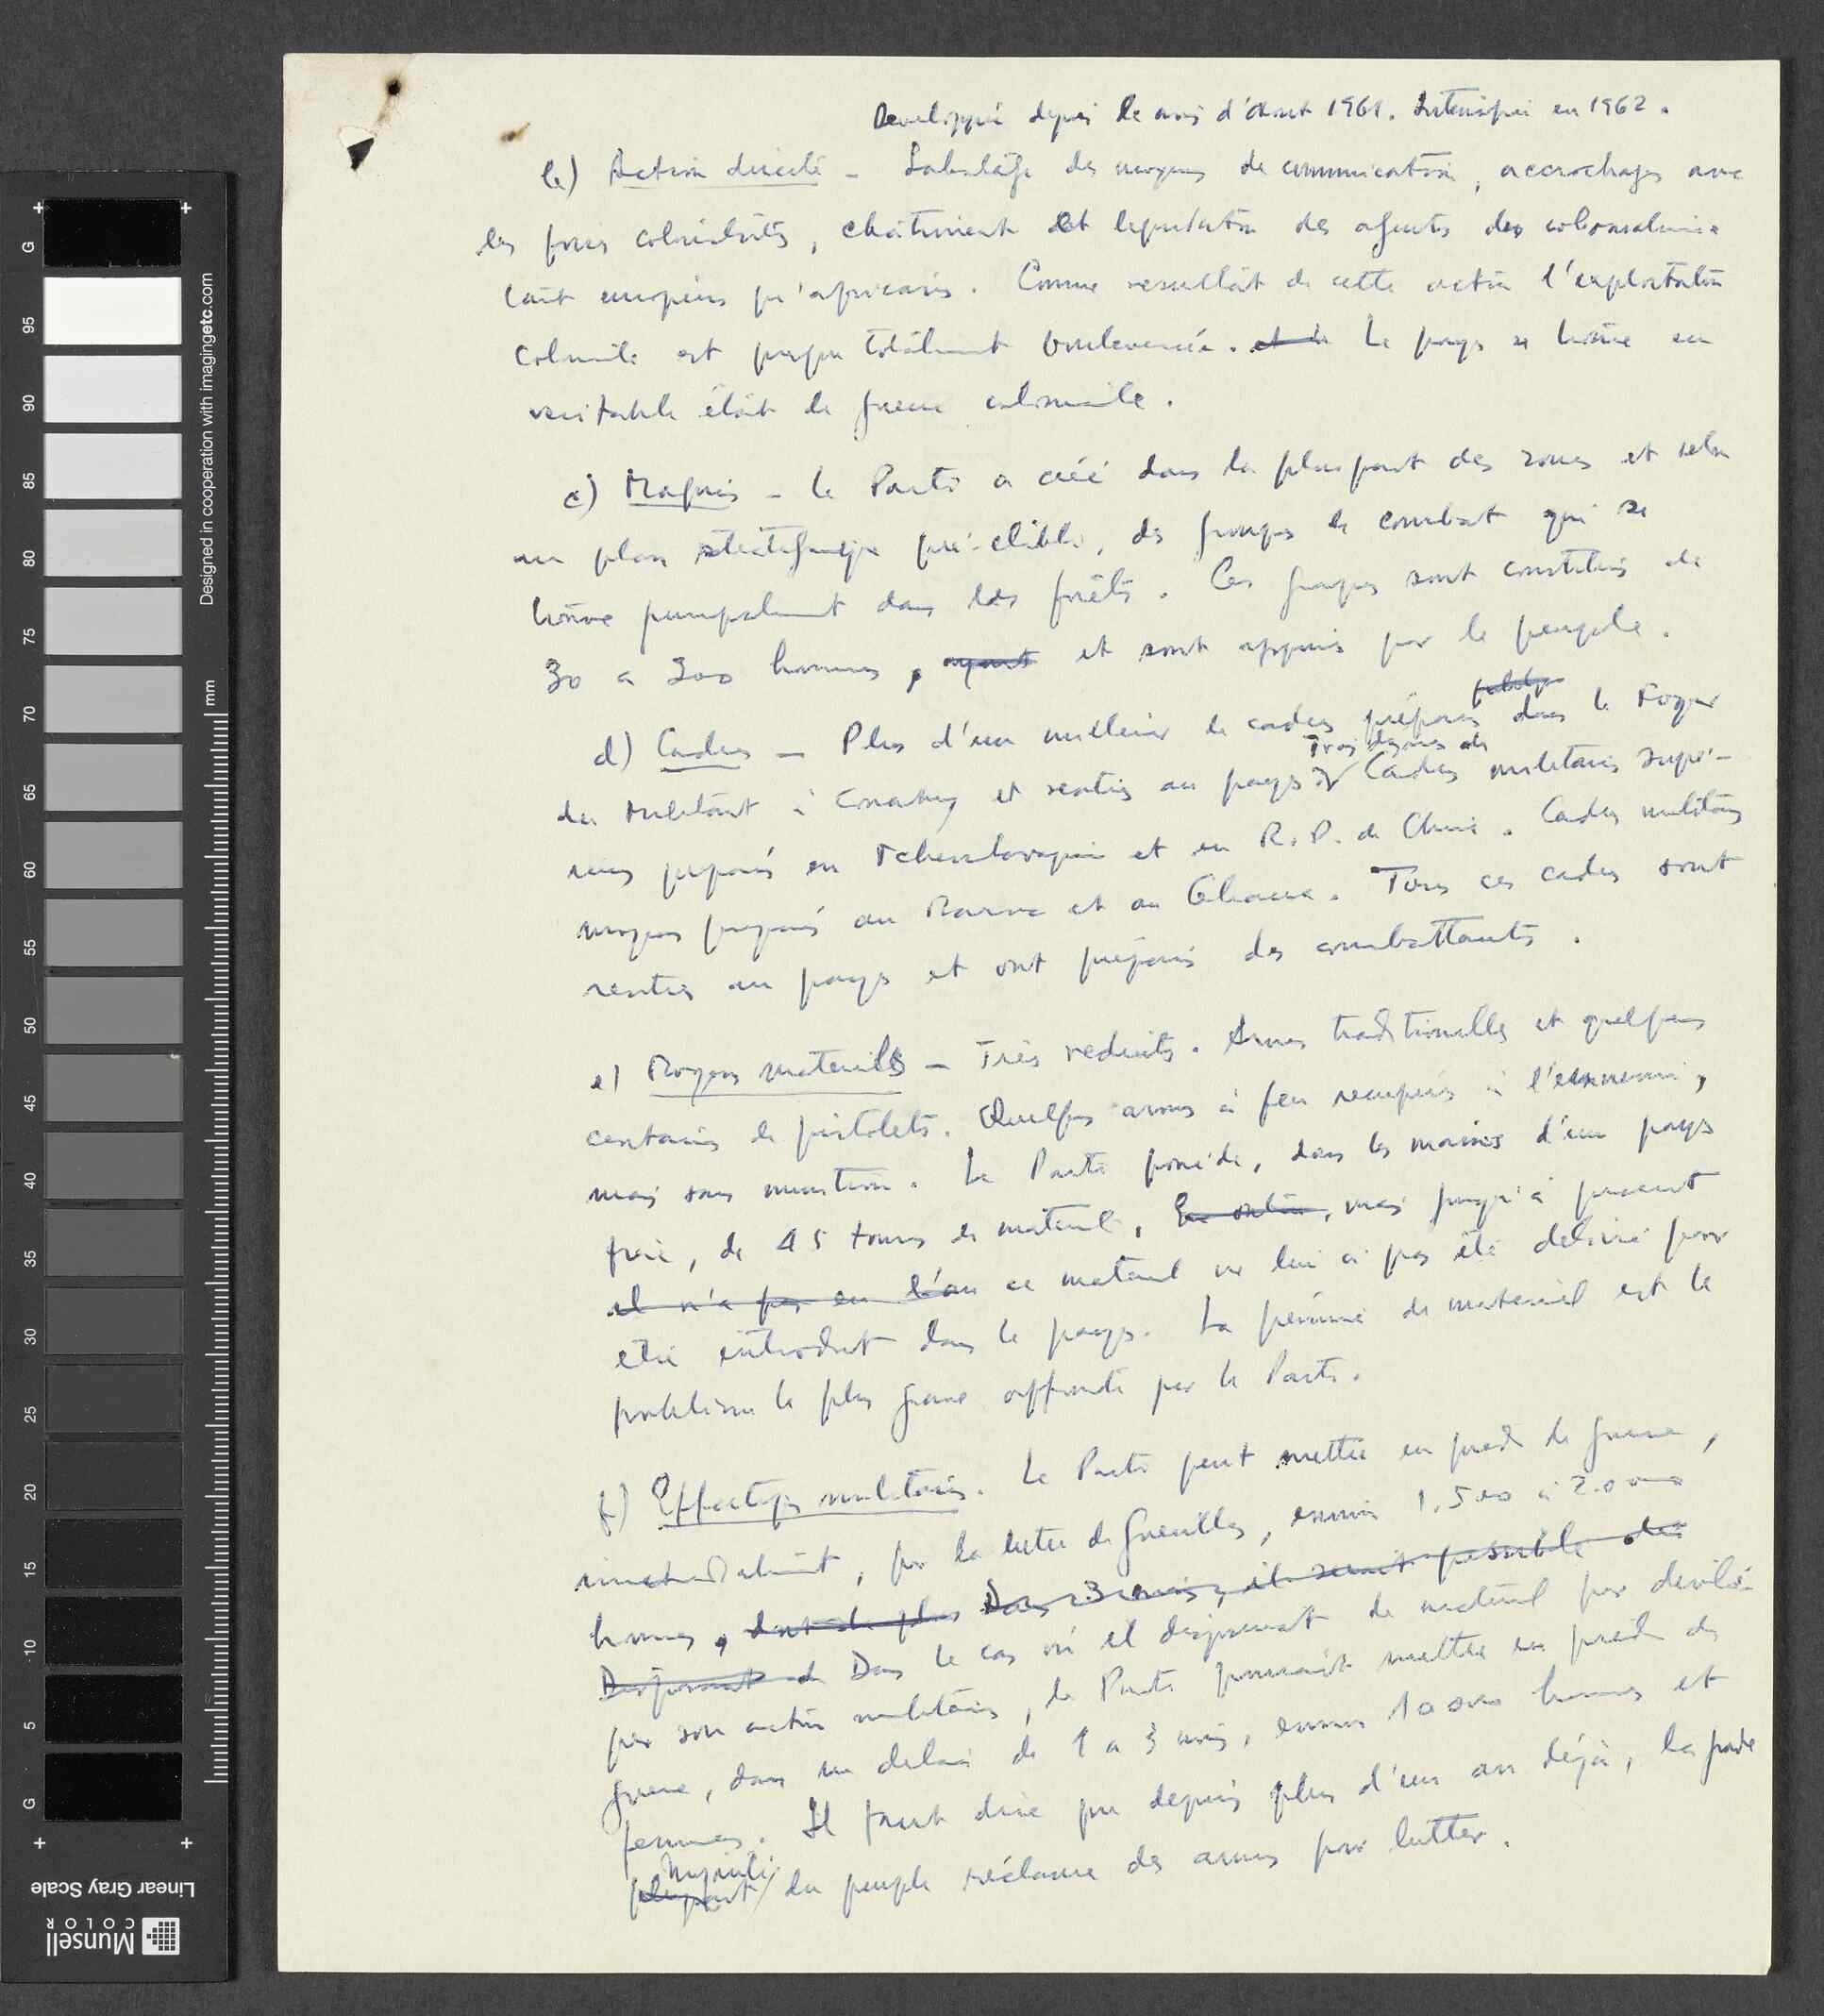 Developpée depuis le mois d'Aout 1961. Intensifiée en 1962.
b) Action directe - Sabotage des moyens de communication, accrochages avec
les forces colonialistes, chatiment et liquidation des agents des colonialistes
tant européens qu'africains. Comme resultat de cette action l'exploitation
coloniale est presque totalment bouleversée. Le pays se trouve en
veritable état de guerre coloniale.
c) Maquis - Le Parti a créé dans la plus part des zones et selon
un plan stratégique pré-etabli, des groupes de combat qui se
trouve principalment dans les forêts. Ces groupes sont constitués de
30 a 300 hommes, ayant et sont appuiés par le peuple.
d) Cadres - Plus d'un millier de cadres préparés dans le Foyer
Trois dizaines de
du Militant à Conakry et rentrés au pays. Cadres militaires supé-
rieurs preparés en Tchecoslovaquie et en R.P. de Chine. Cadres militaires
moyens preparés au Maroc et au Ghana. Tous ces cadres sont
rentrés au pays et ont préparé des combattants.
e) Moyens materiels - Très reduits. Armes traditionnelles et quelques
centaines de pistolets. Quelques armes à feu recuperées à l'ennemi,
mais sans munition. Le Parti possède, dans les mains d'un pays
frère, de 45 tonnes de materiel, En outre, mais jusqu'à present
il n'a pas eu l'au ce materiel ne lui a pas été delivré pour
etre introduit dans le pays. La pénurie de materiel est le
problème le plus grave affronté par le Parti.
f) Effectifs militaires. Le Parti peut mettre en pied de guerre,
immediatment, pour la lutte de guerilles, environ 1.500 à 2.000
hommes, Dans 3 mois, il serait possible de
Disposant d Dans le cas où il disposerait de materiel pour dévelo-
per son action militaire, le Parti pourrait mettre en pied de
guerre, dans un delai de 1 a 3 mois, environ 10 000 hommes et
femmes. Il faut dire que depuis plus d'un an déjà, la grande
majorité
plupart du peuple réclame des armes pour lutter.
Designed in cooperation with imagingetc.com
mm
G 95 90 85 80 75 70 65 60 55 50 45 40 35 30 25 20 15 10 5 G
Linear Gray Scale
Munsell
COLOR